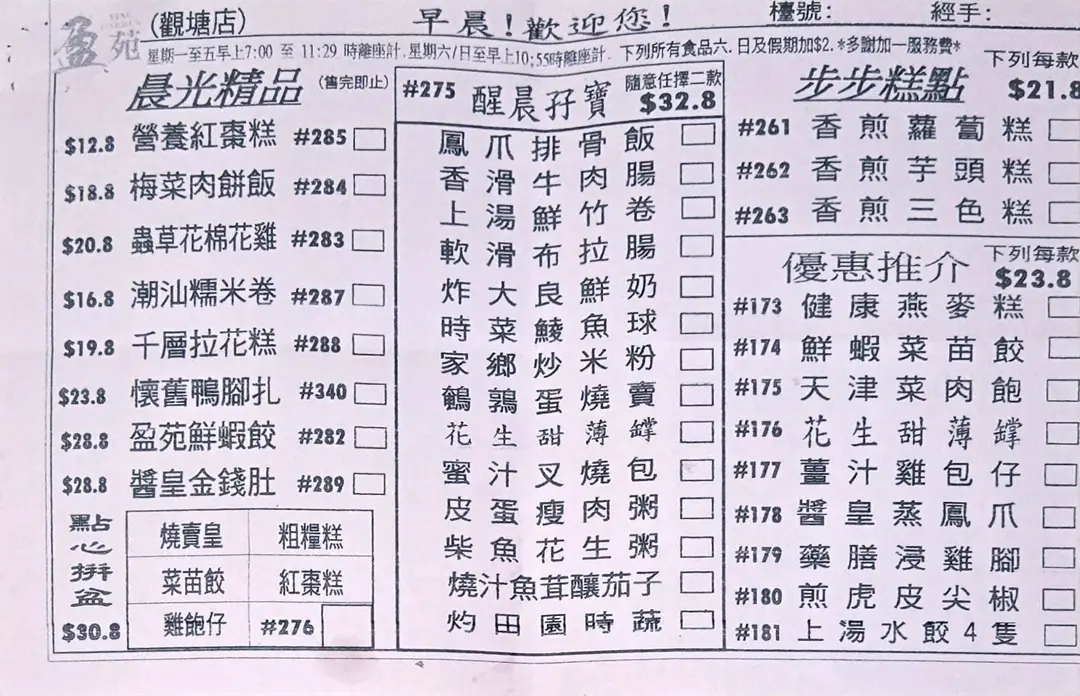 盈苑 (觀塘店)
早晨！歡迎您！
檯號： 經手：
星期一至五早上7:00 至 11:29 時離座計. 星期六/日至早上10;55時離座計. 下列所有食品六. 日及假期加$2. *多謝加一服務費*
晨光精品 (售完即止)
$12.8 營養紅棗糕 #285
$18.8 梅菜肉餅飯 #284
$20.8 蟲草花棉花雞 #283
$16.8 潮汕糯米卷 #287
$19.8 千層拉花糕 #288
$23.8 懷舊鴨腳扎 #340
$28.8 盈苑鮮蝦餃 #282
$28.8 醬皇金錢肚 #289
點心拼盆
$30.8
燒賣皇 粗糧糕
菜苗餃 紅棗糕
雞飽仔 #276
#275 醒晨孖寶 隨意任擇二款
$32.8
鳳爪排骨飯
香滑牛肉腸
上湯鮮竹卷
軟滑布拉腸
炸大良鮮奶
時菜鯪魚球
家鄉炒米粉
鵪鶉蛋燒賣
花生甜薄罉
蜜汁叉燒包
皮蛋瘦肉粥
柴魚花生粥
燒汁魚茸釀茄子
灼田園時蔬
步步糕點 下列每款
$21.8
#261 香煎蘿蔔糕
#262 香煎芋頭糕
#263 香煎三色糕
優惠推介 下列每款
$23.8
#173 健康燕麥糕
#174 鮮蝦菜苗餃
#175 天津菜肉飽
#176 花生甜薄罉
#177 薑汁雞包仔
#178 醬皇蒸鳳爪
#179 藥膳浸雞腳
#180 煎虎皮尖椒
#181 上湯水餃4隻